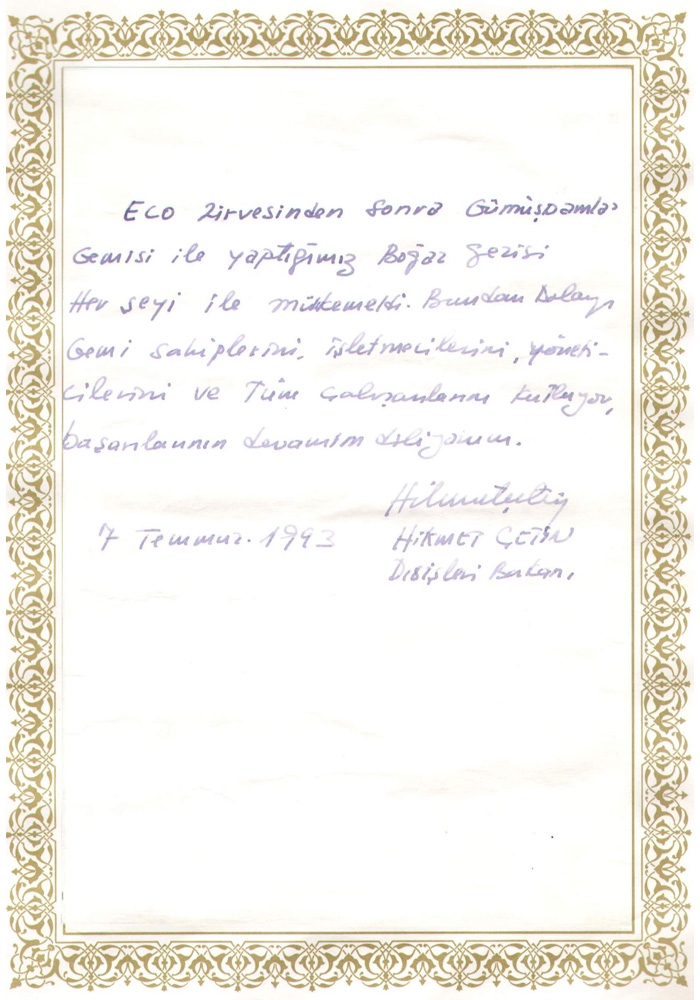 ECO Zirvesinden Sonra Gümüşdamla
Gemisi ile yaptığımız Boğaz gezisi
Her şeyi ile mükemeldi. Bundan Dolayı
Gemi sahiplerini, işletmecilerini, yöneti-
cilerini ve Tüm Çalışanlarını kutluyor,
başarılarının devamını diliyorum.
Hikmet Çetin
7 Temmuz. 1993 HİKMET ÇETİN
Dışişleri Bakanı